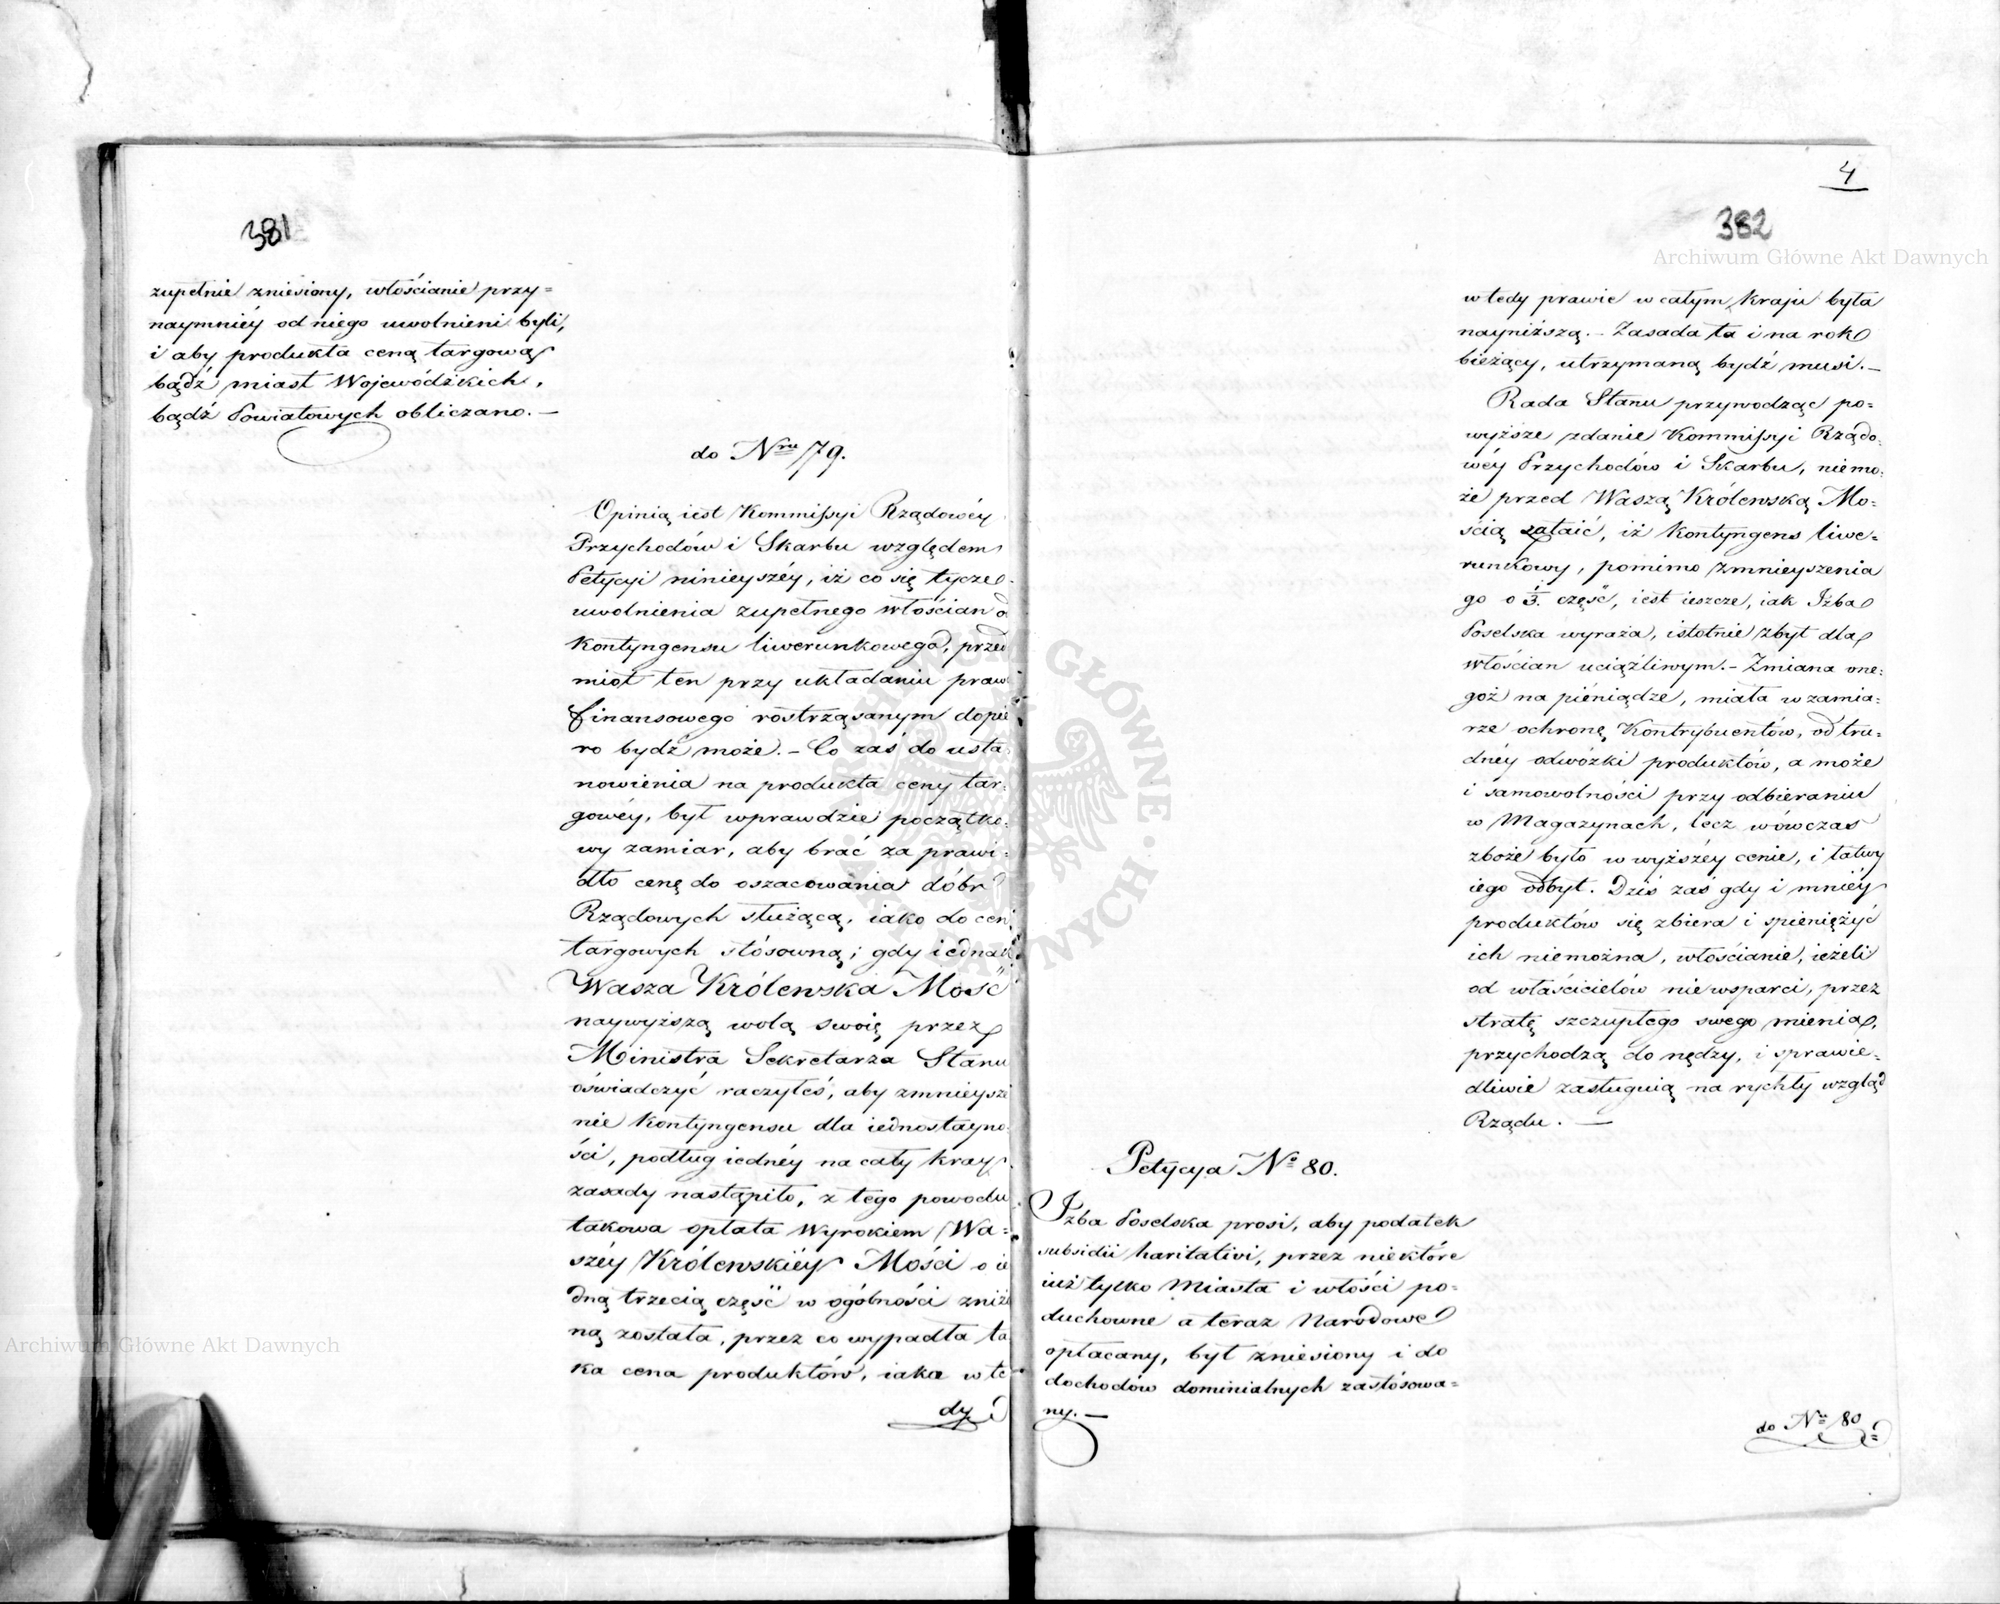 381
zupełnie zniesiony, włościanie przy=
naymniéy od niego uwolnieni byli,
i aby produkta ceną targową
bądź miast Wojewódzkich,
bądź Powiatowych obliczano.—
do Nru 79.
Opinią iest Kommissyi Rządowéy
Przychodów i Skarbu względem
Petycyi ninieyszéy, iż co się tycze
uwolnienia zupełnego włościan od
kontyngensu liwerunkowego, przed
miot ten przy układaniu praw
finansowego rostrząsanym dopie
ro bydź może.— Co zaś do usta=
nowienia na produkta ceny tar=
gowéy, był wprawdzie początko=
wy zamiar, aby brać za prawi=
dło cenę do oszacowania dóbr
Rządowych służącą, iako do cen
targowych stósowną; gdy iednak
Wasza Królewska Mość
naywyższą wolą swoię przez
Ministra Sekretarza Stanu
oświadczyć raczyłeś, aby zmnieysze
nie kontyngensu dla iednostayno
ści, podług iednéy na cały kray
zasady nastąpiło, z tego powodu
takowa opłata Wyrokiem Wa=
széy Królewskiéy Mości o ie
dną trzecią część w ogólności zniżo
ną została, przez co wypadła ta
ka cena produktów, iaka wte
dy
4
382
wtedy prawie w całym Kraju była
nayniższą.— Zasada ta i na rok
bieżący, utrzymaną bydź musi.—
Rada Stanu przywodząc po=
wyższe zdanie Kommissyi Rządo=
wéy Przychodów i Skarbu, niemo=
że przed Waszą Królewską Mo=
ścią zataić, iż kontyngens liwe=
runkowy, pomimo zmnieyszenia
go o 1/3. część, iest ieszcze, iak Izba
Poselska wyraża, istotnie zbyt dla
włościan uciążliwym.— Zmiana one=
goż na piéniądze, miała w zamia=
rze ochronę Kontrybuentów, od tru=
dnéy odwózki produktów, a może
i samowolności przy odbieraniu
w Magazynach, lecz wówczas
zboże było w wyższéy cenie, i łatwy
iego odbyt. Dziś zaś gdy i mniéy
produktów się zbiera i spieniężyć
ich niemożna, włościanie, ieżeli
od właścicielów niewsparci, przez
stratę szczupłego swego mienia,
przychodzą do nędzy, i sprawie=
dliwie zasługuią na rychły wzgląd
Rządu.—
Petycya No 80.
Izba Poselska prosi, aby podatek
subsidii haritativi, przez niektóre
iuż tylko Miasta i włości po=
duchowne a teraz Narodowe
opłacany, był zniesiony i do
dochodów dominialnych zastósowa=
ny.—
do Nru 80
Archiwum Główne Akt Dawnych
Archiwum Główne Akt Dawnych